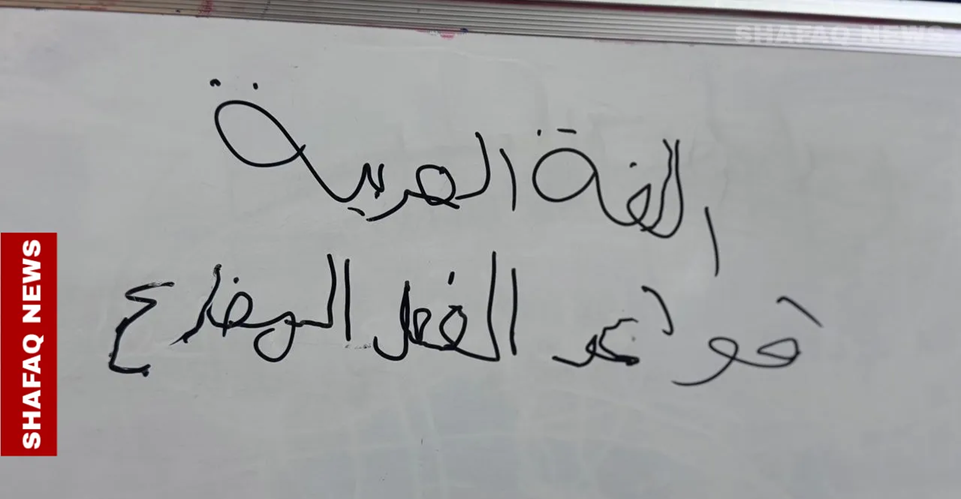 اللغة العربية
قواعد الفعل المضارع
SHAFAQ NEWS
SHAFAQ NEWS